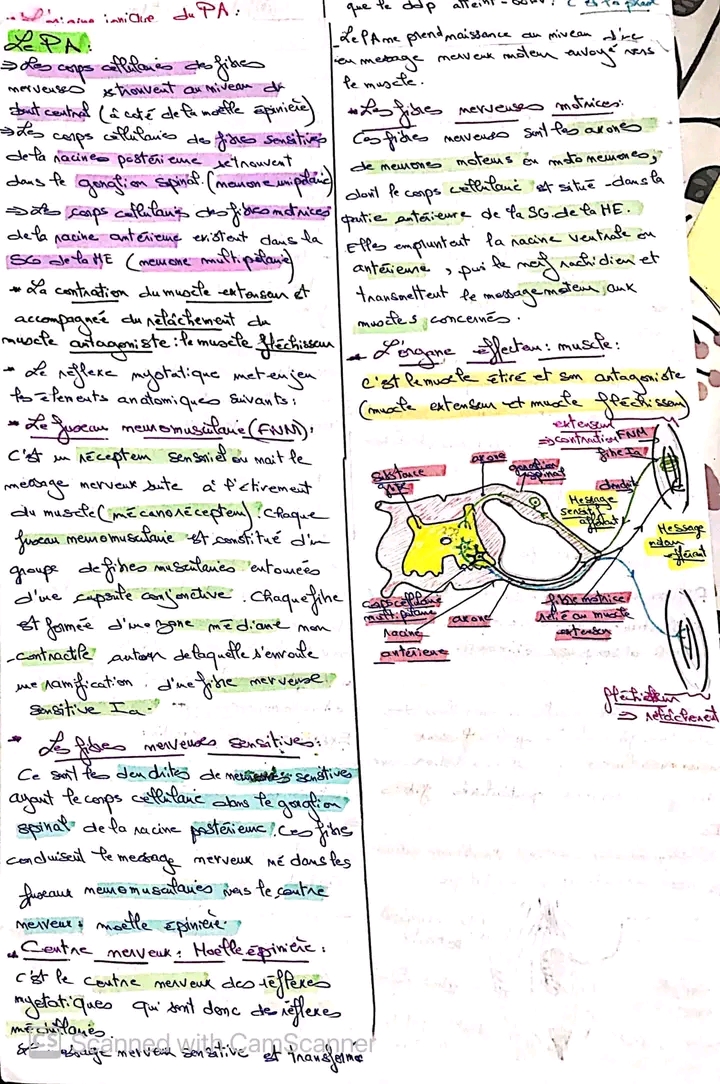 du PA:
Le PA:
⇒ Les corps cellulaires des fibres
nerveuses se trouvent au niveau du
(à coté de la moelle épinière)
⇒ Les corps cellulaires des fibres sensitives
de la racines postérieure se trouvent
dans le ganglion spinal. (neurone unipolaire)
⇒ Les corps cellulaires des fibres motrices
de la racine antérieure existent dans la
SG de la ME (neurone multipolaire)
* La contration du muscle extenseur et
accompagnée du relâchement du
muscle antagoniste : le muscle fléchisseur
* Le réflexe myotatique met en jeu
les élements anatomiques suivants:
* Le fuseau neuromusculaire (FNM):
C'est un récepteur sensoriel où nait le
message nerveux suite à l'étirement
du muscle (mécanorécepteur). Chaque
fuseau neuromusculaire est constitué d'un
groupe de fibres musculaires entourées
d'une capsule conjonctive. Chaque fibre
est formée d'une zone médiane non
contractile autour de laquelle s'enroule
une ramification d'une fibre nerveuse
sensitive Ia.
* Les fibres nerveuses sensitives:
Ce sont les dendrites de neurones sensitives
ayant le corps cellulaire dans le ganglion
spinal de la racine postérieure. Ces fibres
conduisent le message nerveux né dans les
fuseaux neuromusculaires vers le centre
nerveux : moelle épinière.
* Centre nerveux : Moelle épinière :
c'est le centre nerveux des réflexes
myotatiques qui sont donc des réflexes
médullaires.
message nerveux sensitive et transforme
Scanned with CamScanner
que le ddp atteint
- Le PA me prend naissance au niveau d'ire
en message nerveux moteur envoyé vers
le muscle.
* Les fibres nerveuses motrices:
Ces fibres nerveuses sont les axones
de neurones moteurs ou motoneurones,
dont le corps cellulaire est situé dans la
partie antérieure de la SG de la ME.
Elles empruntent la racine ventrale ou
antérieure, puis le nerf rachidien et
transmettent le message moteur aux
muscles concernés.
* L'organe effecteur : muscle :
c'est le muscle étiré et son antagoniste
(muscle extenseur et muscle fléchisseur)
extenseur
⇒ contraction FNM
fibre Ia
substance
grise
axone
ganglion
spinal
dendrite
Message
sensitif
afférent
Message
moteur
efférent
corps cellulaire
multipolaire
racine
antérieure
axone
fibre motrice
relié au muscle
extenseur
fléchisseur
⇒ relâchement